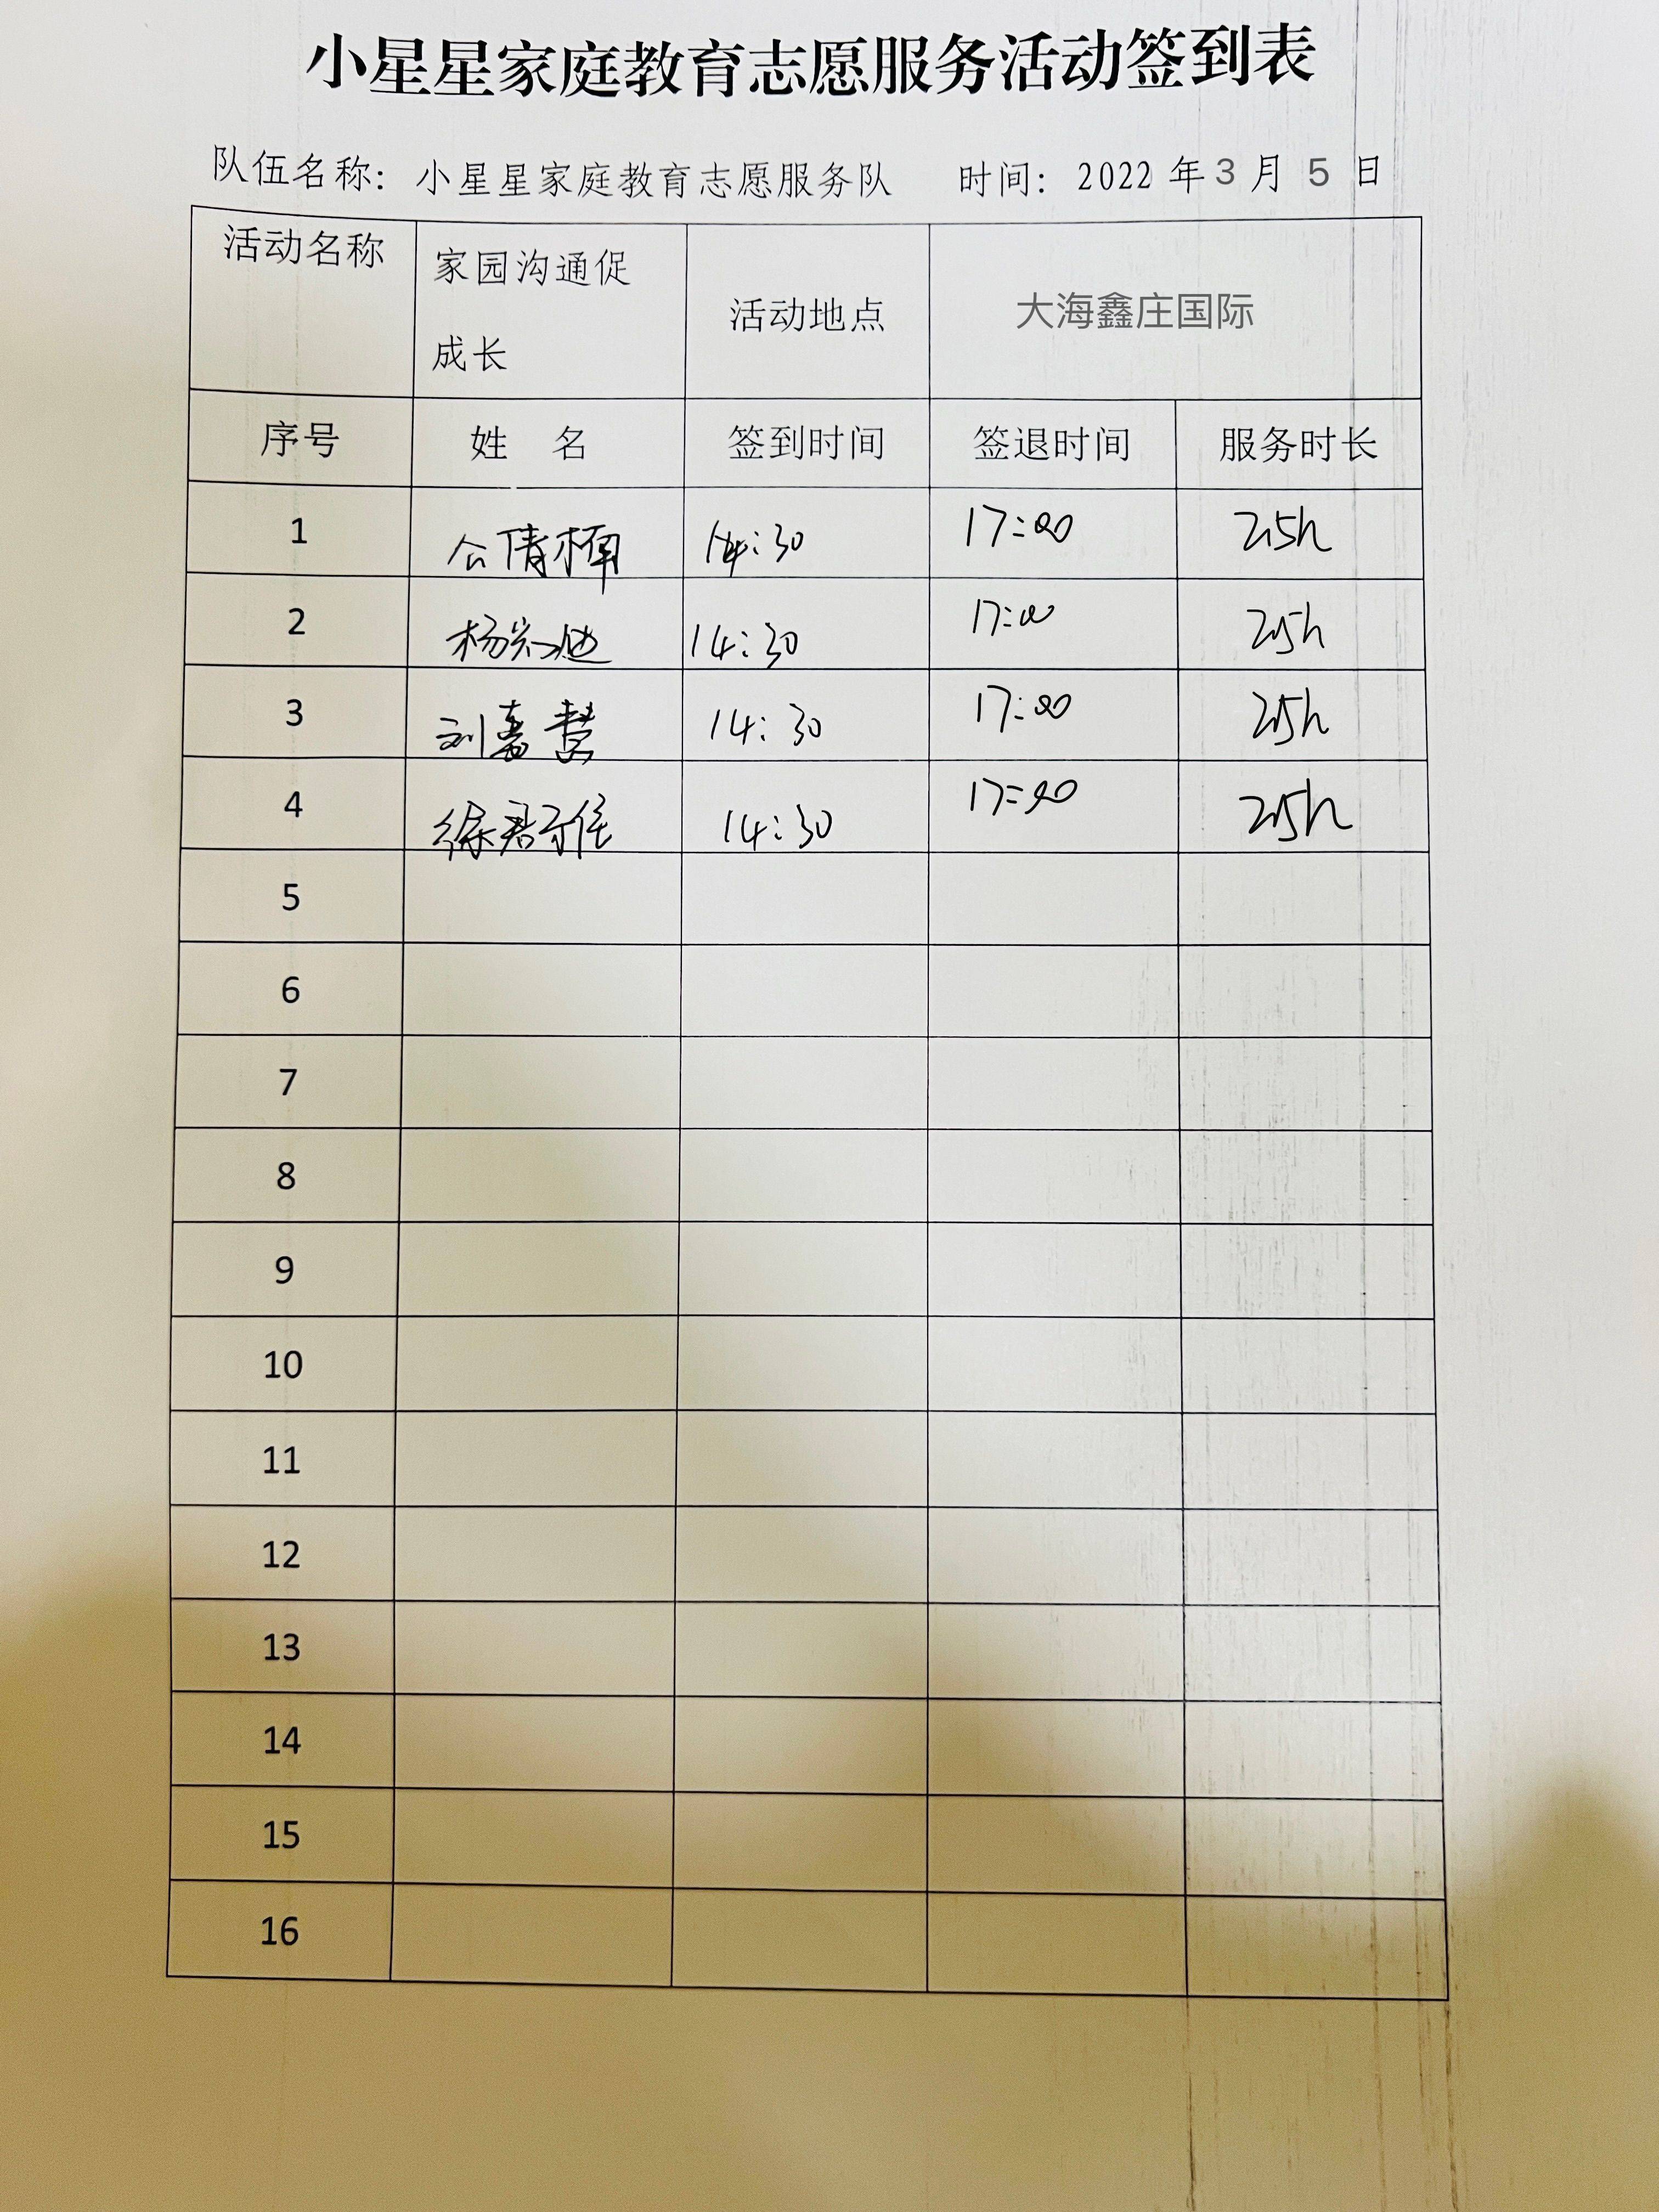 小星星家庭教育志愿服务活动签到表
队伍名称：小星星家庭教育志愿服务队 时间：2022 年 3 月 5 日
活动名称 家园沟通促成长 活动地点 大海鑫庄国际
序号 姓 名 签到时间 签退时间 服务时长
1 公倩楠 14:30 17:00 2.5h
2 杨 14:30 17:00 2.5h
3 刘嘉慧 14:30 17:00 2.5h
4 徐君 14:30 17:00 2.5h
5
6
7
8
9
10
11
12
13
14
15
16